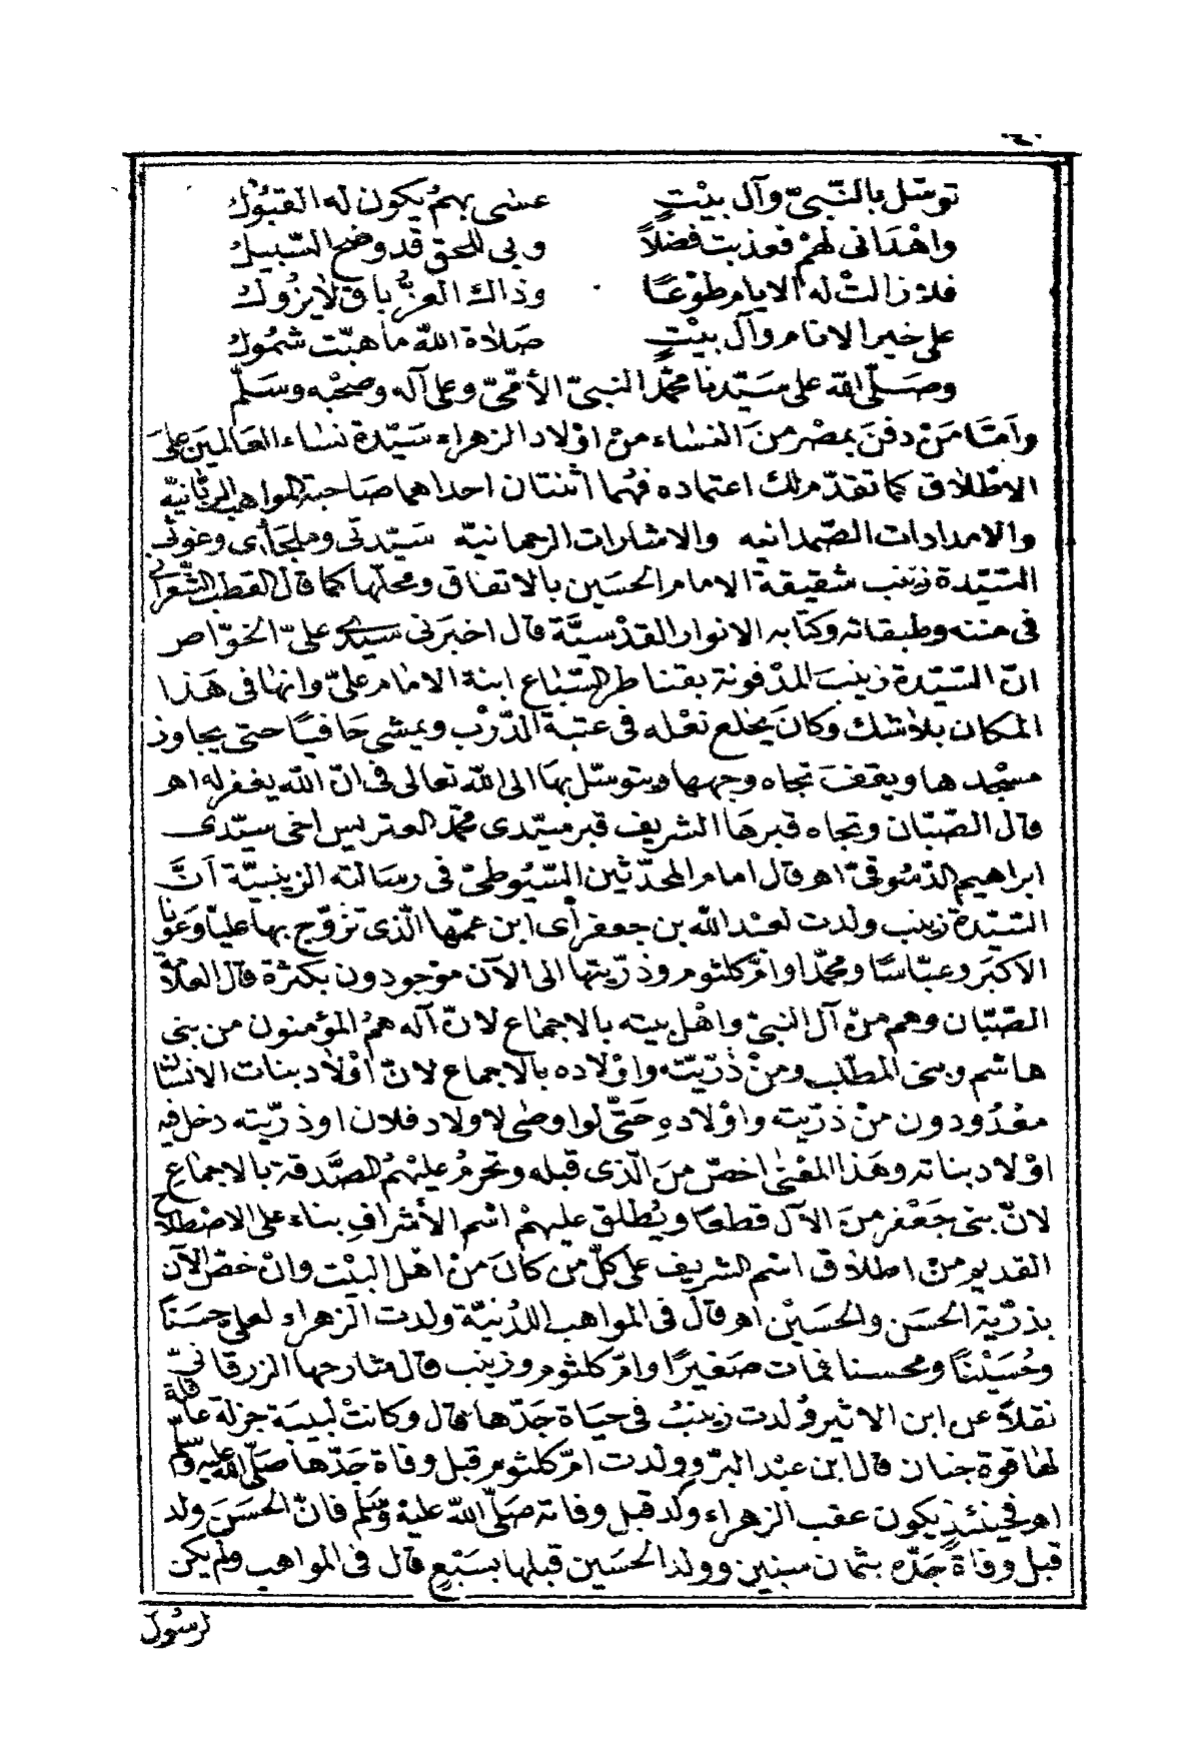 توسّل بالنّبيّ وآل بيْتٍ عسٰى بهمُ يكون له القبُوْل
واهْدَانى لهمْ فعذبت فضلاً وبى للحق قد وضح السّبيل
فلا زالتْ له الايام طوْعًا وذاك العزُّ باق لايزُول
على خير الانام وآل بيْتٍ صَلاة اللّه ما هبّت شمُول
وصَلّى اللّه على سَيّدنا محمّد النبىّ الأمّىّ وعلى آله وصحْبه وسَلّم
وأمّا مَنْ دفنَ بمصْر منَ النسَاء منْ اوْلاد الزهراء سَيّدة نسَاء العَالمينَ علىَ
الاطْلاق كما تقدّم لك اعتماده فهُما اثنتان احداهما صَاحبة المواهب الربّانيّة
والامدادات الصّمدانيه والاشارات الرحمانيّه سَيّدتى وملجَأى وغوثى
السَّيّدة زينب شقيقة الامام الحسَين بالاتفاق ومحلّها كما قال القطب الشّعرانى
فى مننه وطبقاته وكتابه الانوار القدْسيَّة قال اخبرَنى سيدى علىّ الخوّاص
انّ السَّيّدة زينبَ المدْفونة بقناطر السّبَاع ابنة الامَام علىّ وانهَا فى هَذا
المكان بلاشك وكانَ يخلع نعْله فى عتبة الدّرْب ويمشى حَافيًا حتى يجاوز
مسْجدها ويقفَ تجاه وجهها ويتوسّل بهَا الى اللّه تعالى فى انّ اللّه يغفر له اهـ
قال الصّبّان وتجاه قبرهَا الشريف قبر سيّدى محمّد العتريس اخى سيّدى
ابراهيم الدّسُوقىّ اهـ قال امام المحدّثين السّيُوطىّ فى رسَالته الزينبيّة أنَّ
السَّيّدة زينب ولدت لعبْد اللّه بن جعفر أى ابن عمّها الّذى تزوّج بها عليّا وعَونا
الاكبَر وعبّاسًا ومحمّدا وامّ كلثوم وذرّيتها الى الآن موْجودون بكثرة قال العلّامة
الصّبّان وهم منْ آل النبىّ واهْل بيته بالاجماع لانّ آله همُ المؤمنون من بنى
هاشم وبنى المطّلب ومنْ ذرّيّته واوْلاده بالاجماع لانّ أوْلاد بنات الانسان
معْدُودون منْ ذرّيته واوْلادهِ حَتّى لو اوصٰى لاولاد فلان او ذرّيته دخل فيه
اوْلاد بناته وهَذا المعْنٰى اخصّ منَ الّذى قبله وتحرمُ عليْهمُ الصَّدقة بالاجماع
لانّ بنى جَعْفر منَ الآل قطعًا ويُطلق عليهمْ اسم الأشرافِ بناء على الاصْطلاح
القديم منْ اطلاق اسْم الشريف على كلّ من كانَ منْ اهْل البيْت وانْ خصّ الآن
بذرّيّة الحسَن والحسَيْن اهـ قالَ فى المواهب اللّدُنيّة ولدت الزهراء لعلى حسَنًا
وحُسَيْنًا ومحسنا فمات صَغيرًا وامّ كلثوم وزينب قال شارحها الزرقانىّ
نقلاً عن ابن الاثير وُلدت زينبُ فى حيَاة جَدّها قال وكانتْ لبيبَة جزلة عاقلة
لها قوة جنان قال ابن عبْد البرّ وولدت امّ كلثوم قبل وفاة جَدّها صَلّى اللّه عليْه وسلم
اهـ فحينئذٍ يكون عقب الزهراء ولد قبل وفاته صَلّى اللّه عليْه وسَلم فانّ الحسَنَ ولد
قبل وفاة جَدّه بثمان سنين وولد الحسَين قبلها بسَبْع قال فى المواهب ولم يكن
لرسُول